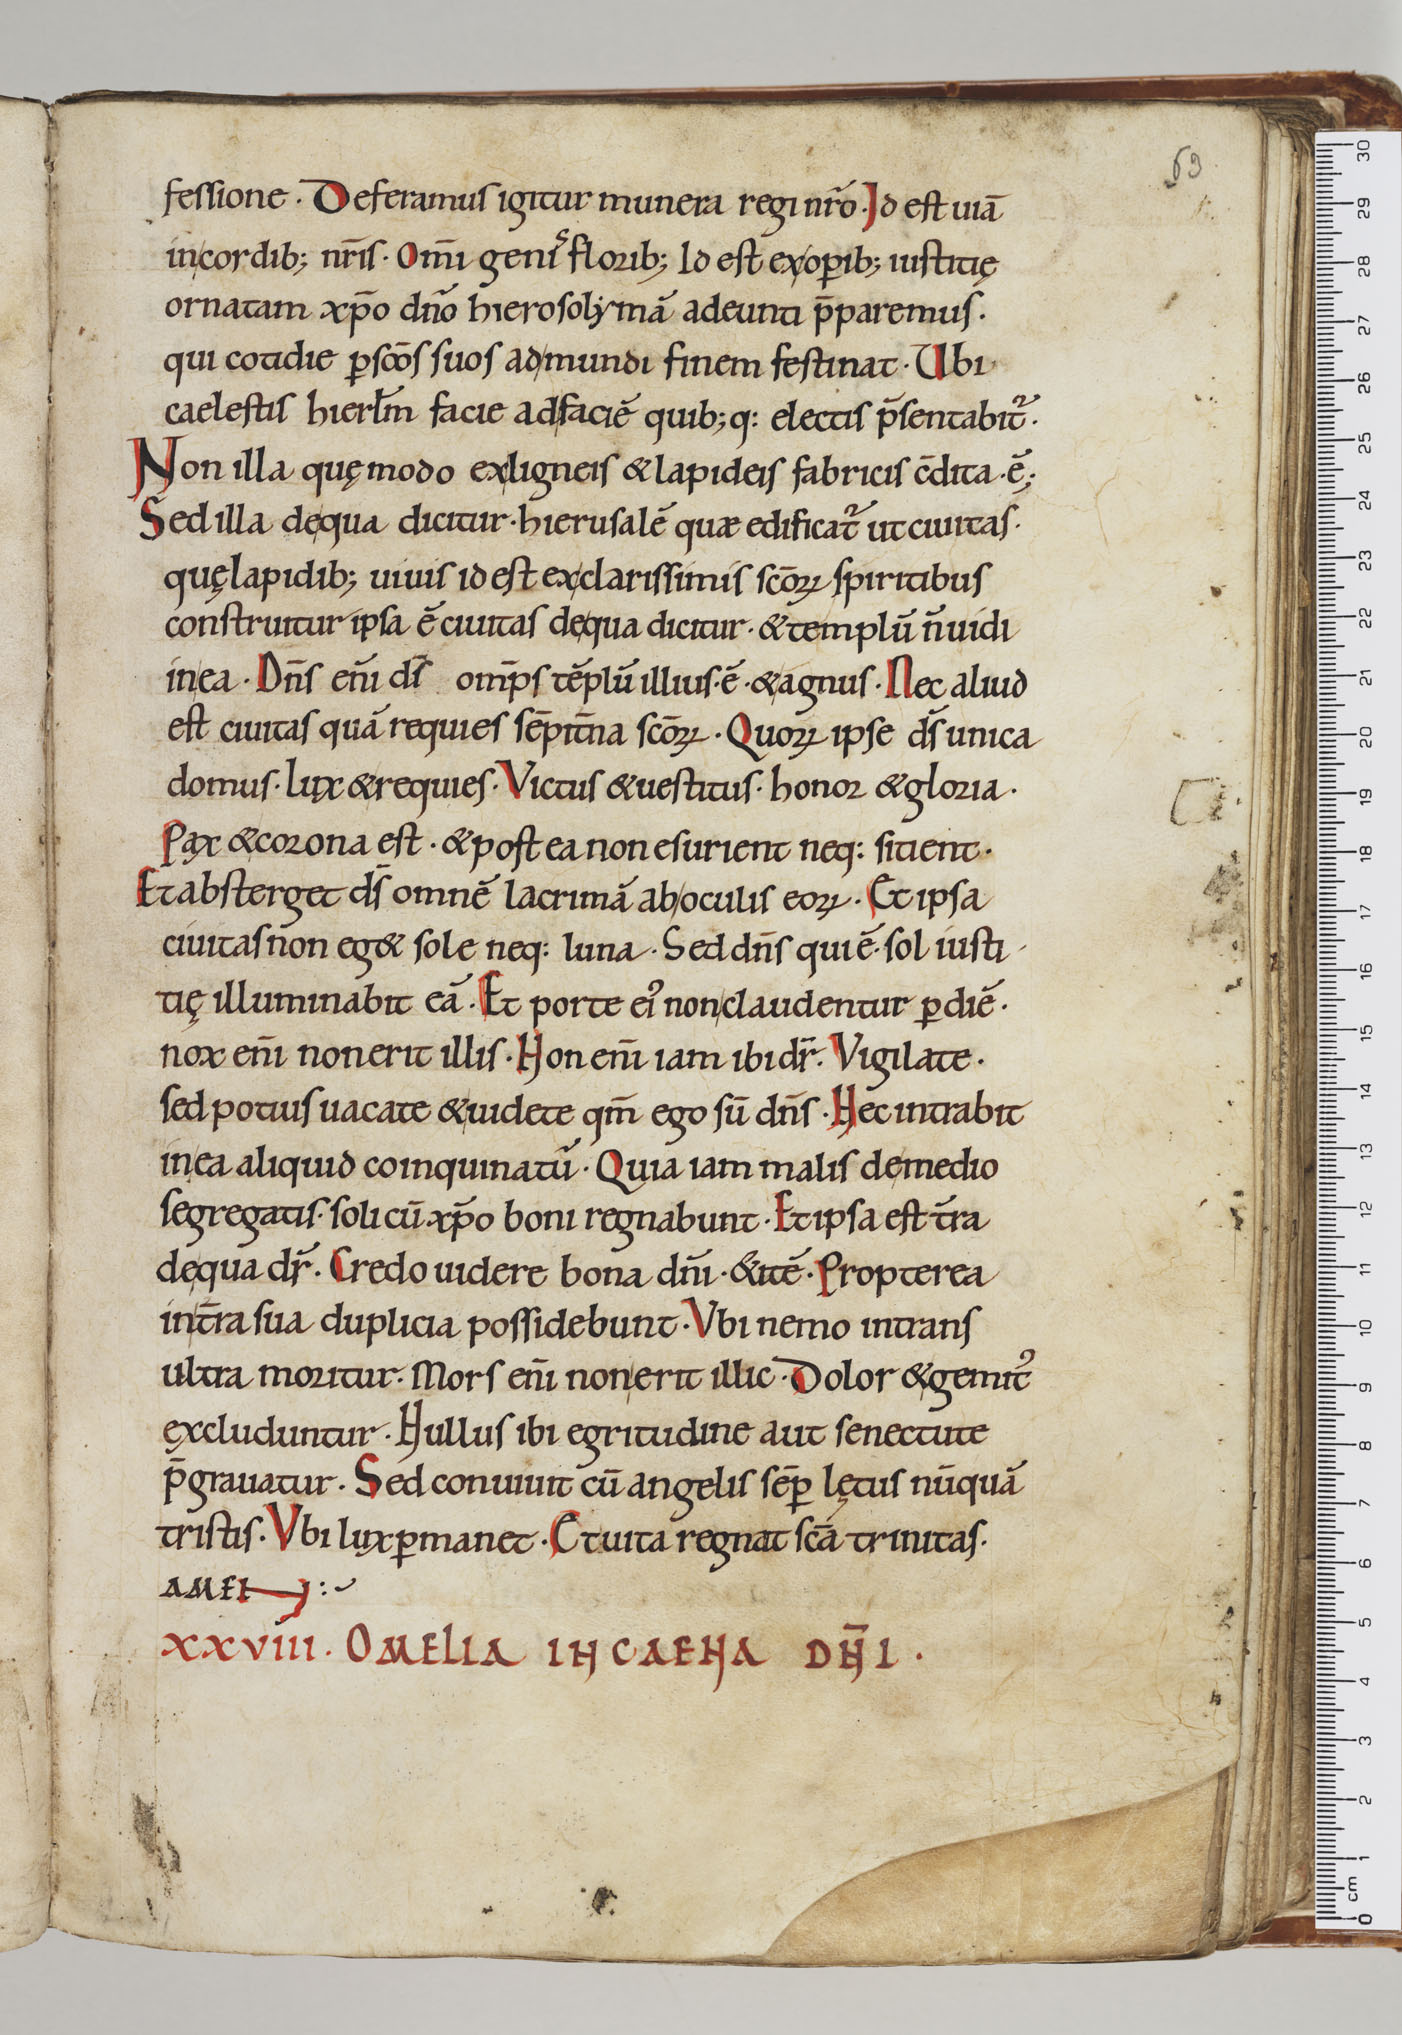 63
fessione · Deferamus igitur munera regi nr̄o · Id est uiā
in cordib; nr̄is · Om̄i geniˢ florib; Id est ex oꝑib; iustitię
ornatam xp̄o dn̄o hierosolymā adeunti p̄paremus ·
qui cotidie ꝑ scōs suos ad mundi finem festinat · Ubi
caelestis hierl̄m facie ad faciē quib;q: electis p̄sentabit᷑ ·
Non illa quę modo ex ligneis & lapideis fabricis c̄dita · ē;
Sed illa de qua dicitur · hierusalē quæ edificat᷑ ut ciuitas ·
quę lapidib; uiuis id est ex clarissimis scōꝝ spiritibus
construitur ipsa ē ciuitas de qua dicitur · & templū n̄ uidi
in ea · Dn̄s eni̅ ds̄ omp̄s tēplū illius · ē · & agnus · Nec aliud
est ciuitas quā requies sēpit̄na scōꝝ · Quoꝝ ipse ds̄ unica
domus · lux & requies · Victus & uestitus · honor & gloria ·
Pax & corona est · & post ea non esurient neq: sitient ·
Et absterget ds̄ omnē lacrimā ab oculis eoꝝ · Et ipsa
ciuitas non eg& sole neq: luna · Sed dn̄s qui ē · sol iusti-
tię illuminabit eā · Et porte eiꝰ non claudentur ꝑ diē ·
nox eni̅ non erit illis · Non eni̅ iam ibi dr̄ · Vigilate ·
sed potius uacate & uidete qm̄ ego sū dn̄s · Nec intrabit
in ea aliquid coinquinatū · Quia iam malis de medio
segregatis · soli cū xp̄o boni regnabunt · Et ipsa est t̄ra
de qua dr̄ · Credo uidere bona dn̄i · & itē · Propterea
in t̄ra sua duplicia possidebunt · Vbi nemo intrans
ultra moritur · Mors eni̅ non erit illic · Dolor & gemitꝰ
excluduntur · Nullus ibi egritudine aut senectute
p̄grauatur · Sed conuiuit cū angelis sēꝑ lętus nūquā
tristis · Vbi lux ꝑmanet · Et uita regnat sc̄a trinitas ·
AMEN :~
XXVIIII · OMELIA IN CAENA DN̄I ·